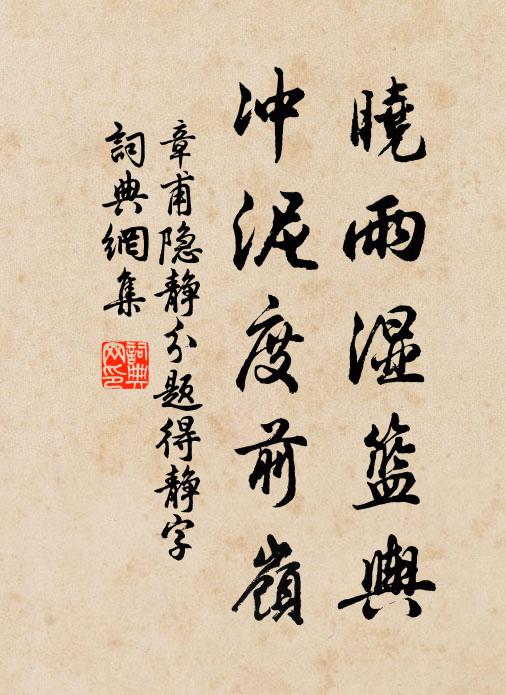 曉雨湿籃輿
冲泥度前嶺
章甫隐静分题得静字
詞典網集
詞典网印